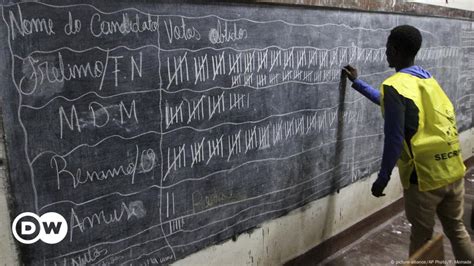 Nome do Candidato Votos obtidos
Frelimo/F.N
M.D.M
Renamo/
Amusi
Votos
SEC
DW
© picture-alliance/AP Photo/F. Momade